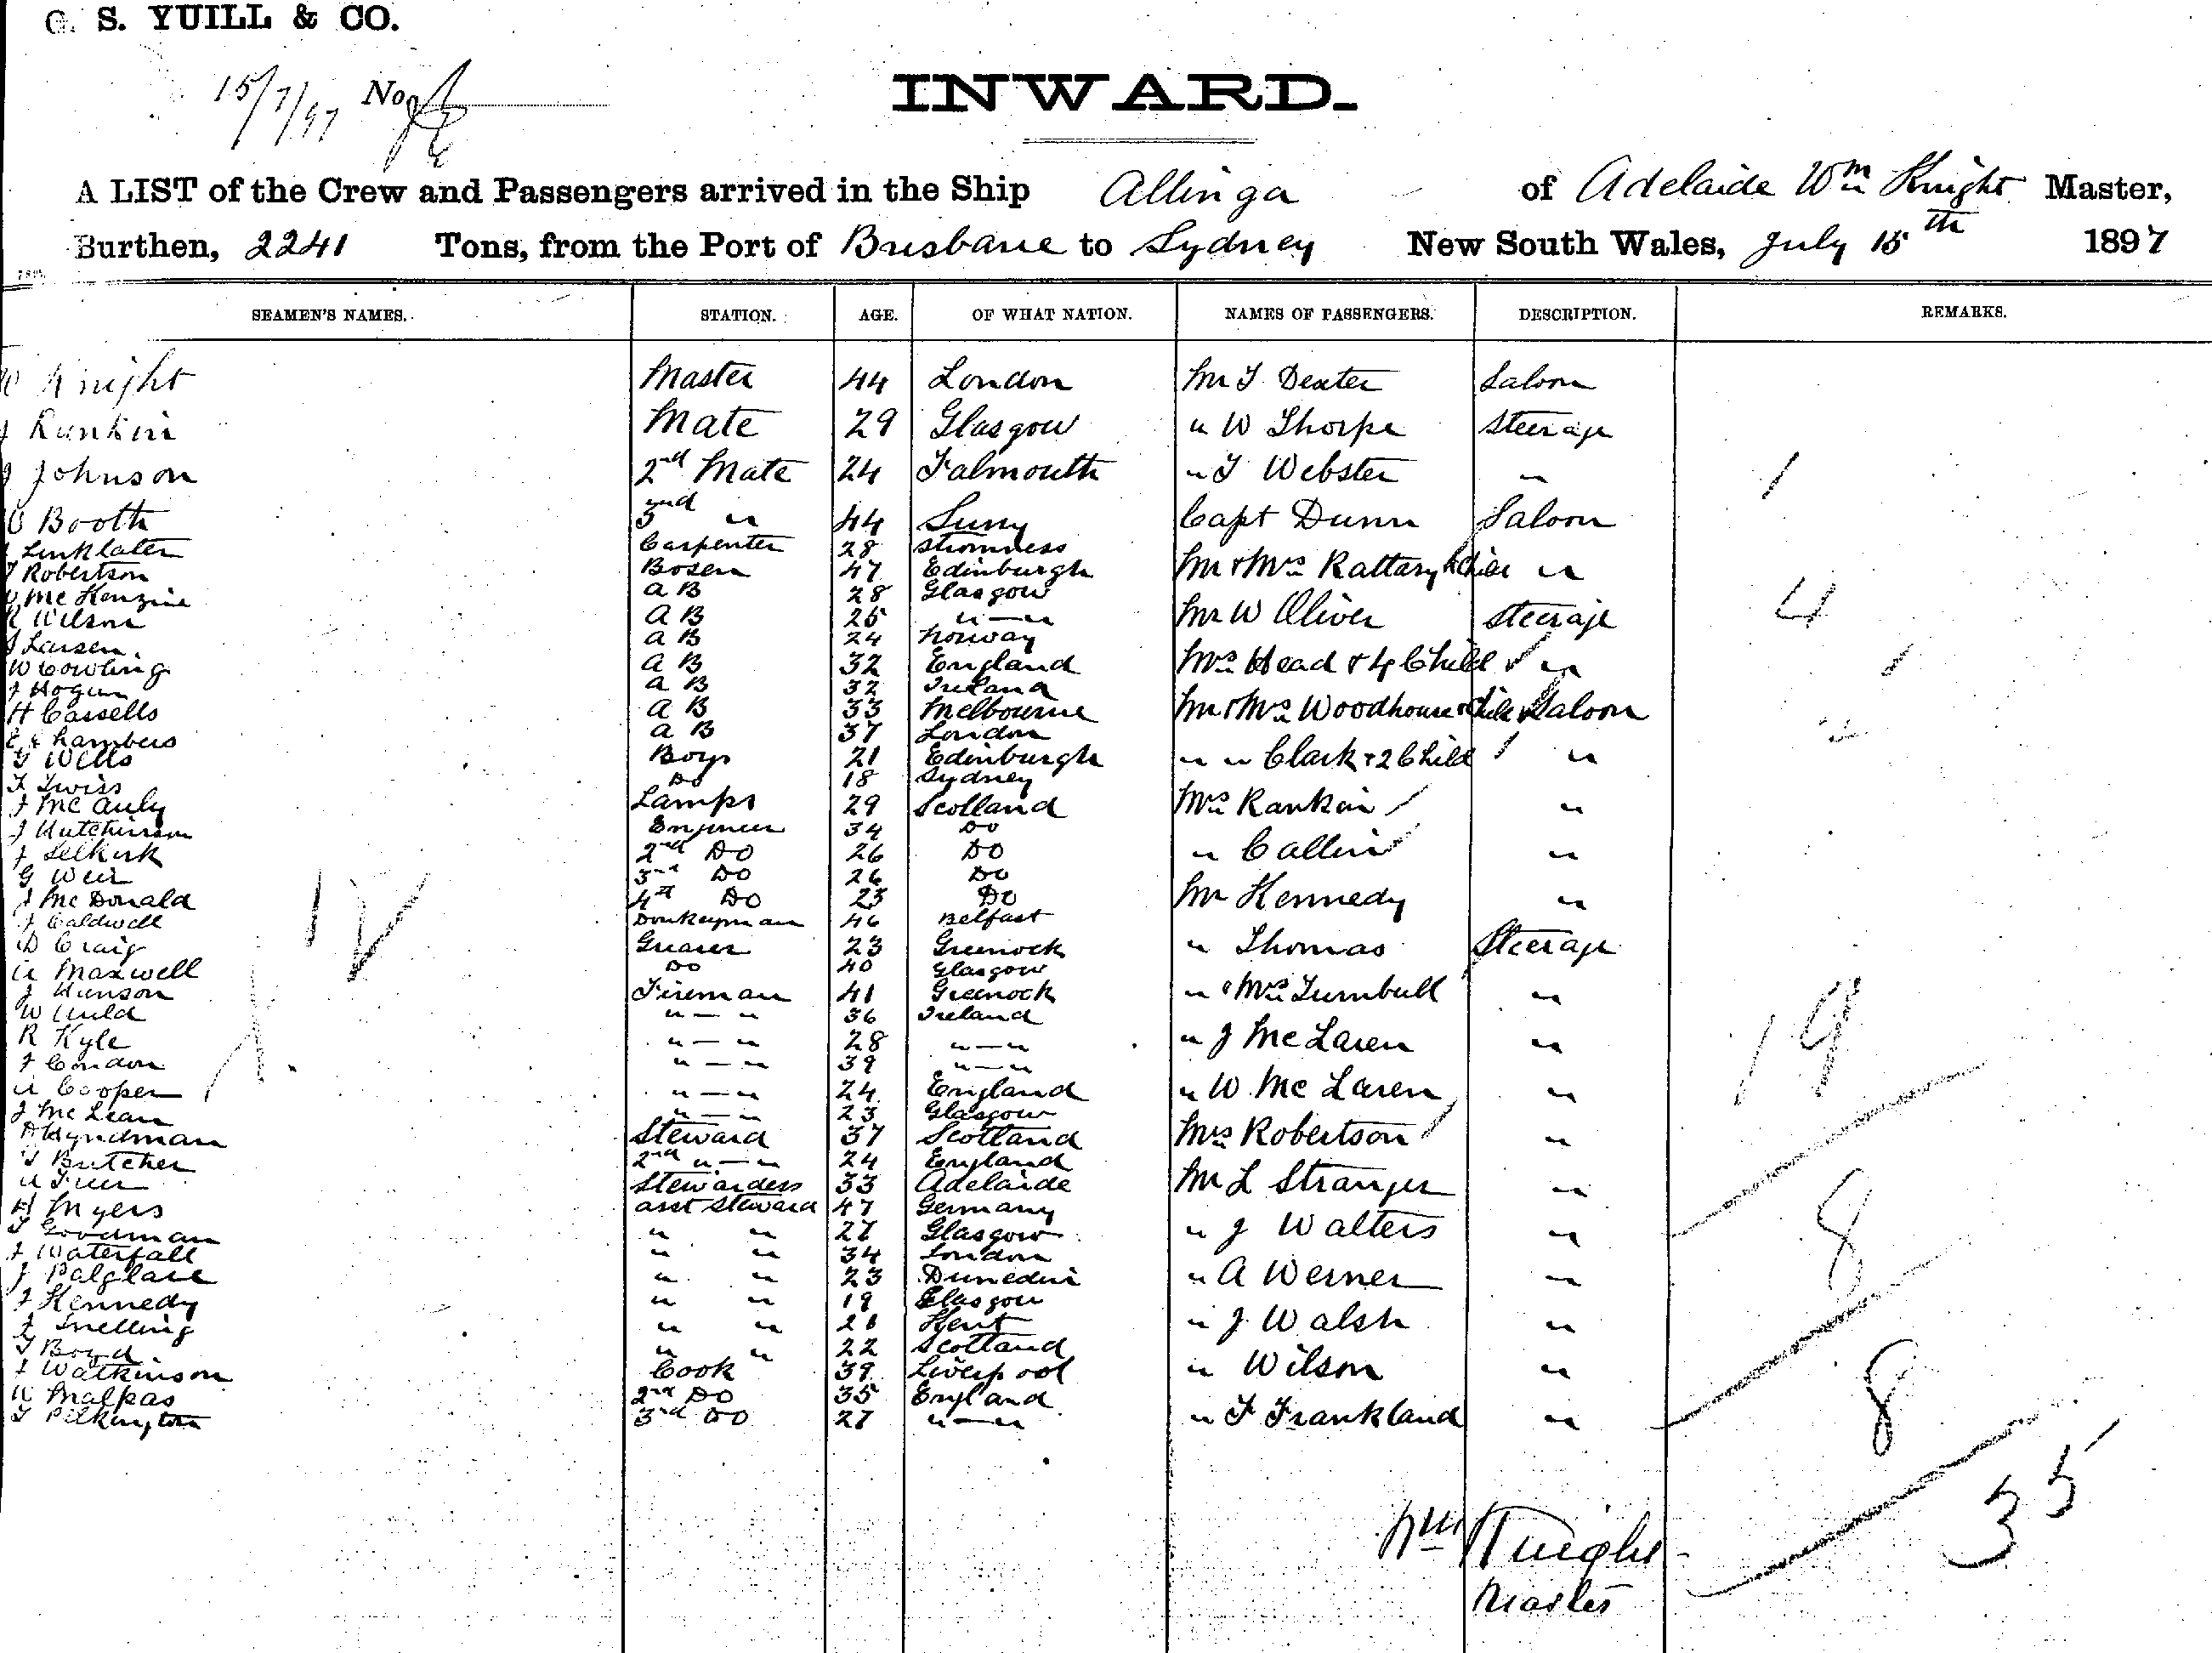 G. S. YUILL & CO.
15/7/97 No
INWARD.
A LIST of the Crew and Passengers arrived in the Ship Allinga of Adelaide Wm Knight Master,
Burthen, 2241 Tons, from the Port of Brisbane to Sydney New South Wales, July 15th 1897
SEAMEN'S NAMES. STATION. AGE. OF WHAT NATION. NAMES OF PASSENGERS. DESCRIPTION. REMARKS.
W Knight Master 44 London Mr T Dexter Saloon
J Rankin Mate 29 Glasgow " W Thorpe Steerage
J Johnson 2nd Mate 24 Falmouth " T Webster " 1
Booth 3rd " 44 Surry Capt Dunn Saloon
Linklater Carpenter 28 Stromness
Robertson Bosen 47 Edinburgh Mr & Mrs Rattary & Child "
McKenzie A B 28 Glasgow
Wilson A B 25 "—" Mr W Oliver Steerage 4
Larsen A B 24 Norway
W Cowling A B 32 England Mrs Head & 4 Child "
J Hogan A B 32 Ireland
H Cassells A B 33 Melbourne Mr & Mrs Woodhouse & Child Saloon
E Chambers A B 37 London
G Wells Boy 21 Edinburgh " " Clark & 2 Child "
F Twiss Do 18 Sydney
J McAuly Lamps 29 Scotland Mrs Rankin "
J Hutchinson Engineer 34 Do
J Selkirk 2nd Do 26 Do " Callin "
G Weir 3rd Do 26 Do
J McDonald 4th Do 25 Do Mr Kennedy "
J Caldwell Donkeyman 46 Belfast
D Craig Greaser 23 Greenock " Thomas Steerage
A Maxwell Do 40 Glasgow
J Hunson Fireman 41 Greenock " & Mrs Turnbull "
W Auld "—" 36 Ireland
R Kyle "—" 28 "—" " J McLaren " 19
J Condon "—" 39 "—"
A Cooper "—" 24 England " W McLaren "
J McLean "—" 23 Glasgow
D Hyndman Steward 37 Scotland Mrs Robertson "
T Butcher 2nd "—" 24 England
A Freer Stewardess 33 Adelaide Mr L Stranger "
H Myers asst Steward 47 Germany
T Goodman " " 27 Glasgow " J Walters " 8
J Waterfall " " 34 London
J Palglase " " 23 Dunedin " A Werner "
J Kennedy " " 19 Glasgow
J Snelling " " 21 Kent " J Walsh "
T Boyd " " 22 Scotland
J Watkinson Cook 39 Liverpool " Wilson "
W Malpas 2nd Do 35 England 8
T Pilkington 3rd Do 27 "—" " F Frankland "
35
Wm Knight
Master